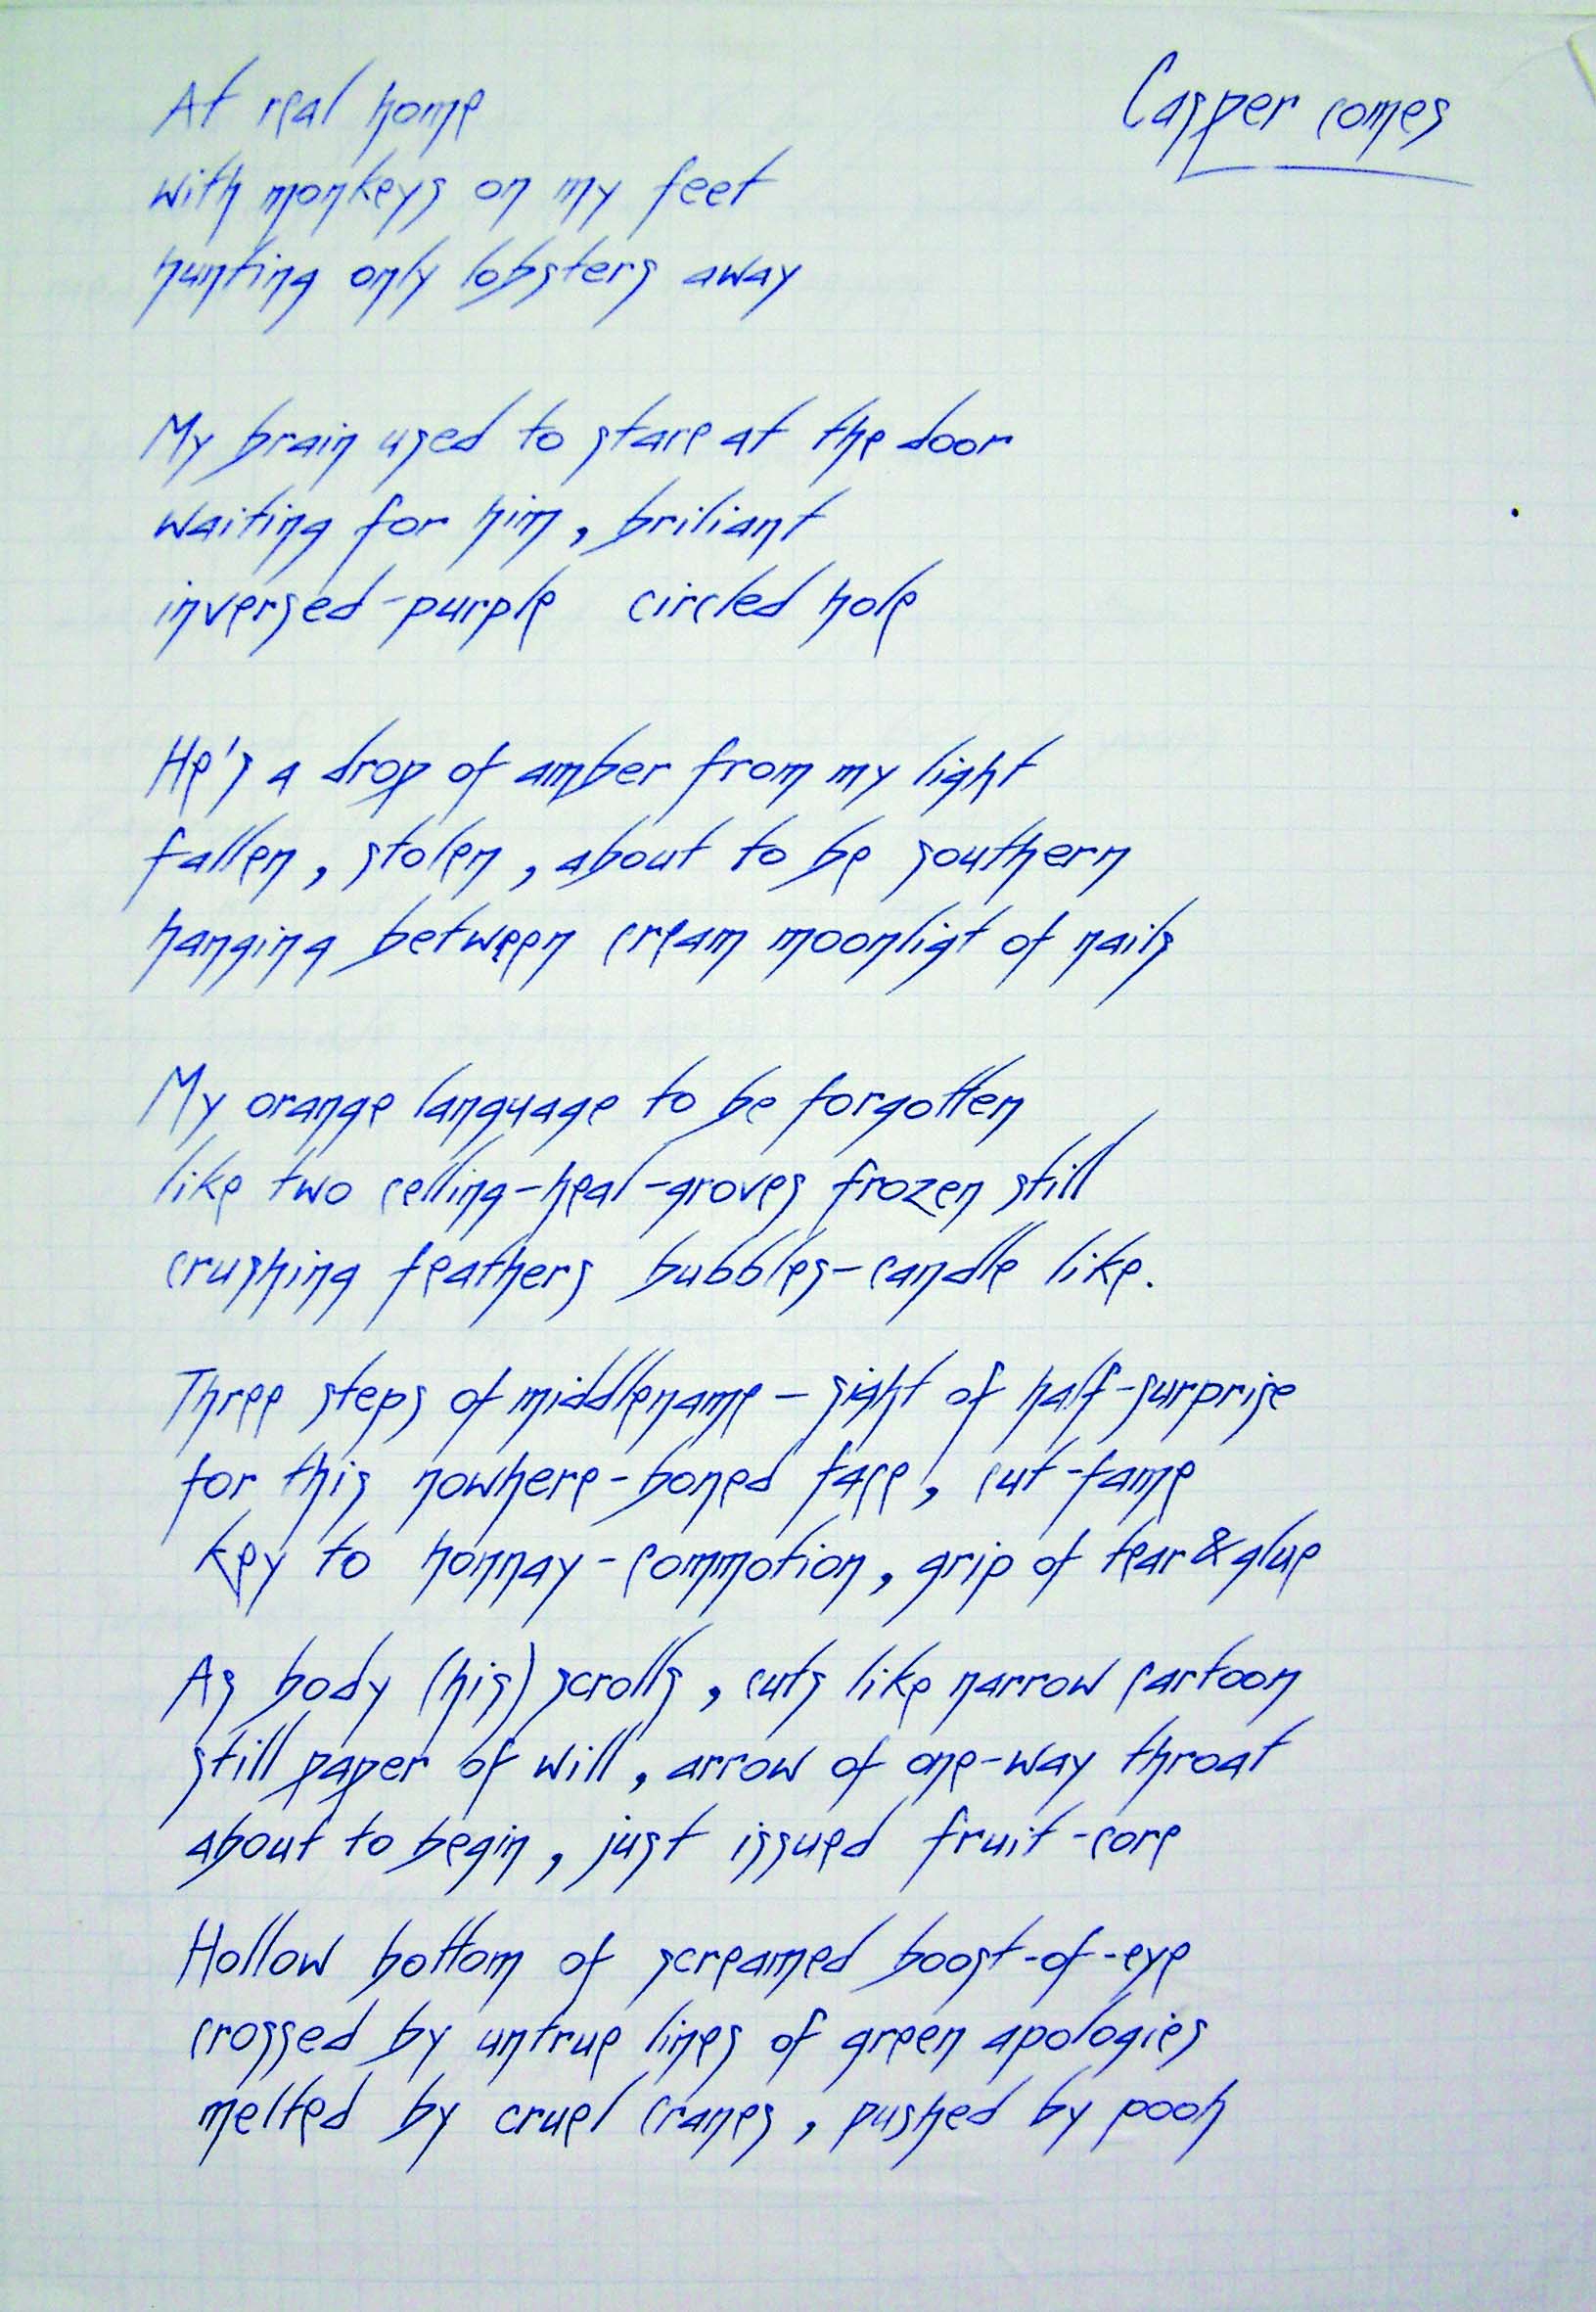 Casper comes
At real home
with monkeys on my feet
hunting only lobsters away
My brain used to stare at the door
waiting for him, briliant
inversed-purple circled hole
He's a drop of amber from my light
fallen, stolen, about to be southern
hanging between cream moonligt of nails
My orange language to be forgotten
like two celling-heal-groves frozen still
crushing feathers bubbles-candle like.
Three steps of middlename - sight of half-surprise
for this nowhere-boned face, cut-fame
key to honnay-commotion, grip of tear & glue
As body (his) scrolls, cuts like narrow cartoon
still paper of will, arrow of one-way throat
about to begin, just issued fruit-core
Hollow bottom of screamed boost-of-eye
crossed by untrue lines of green apologies
melted by cruel cranes, pushed by pooh